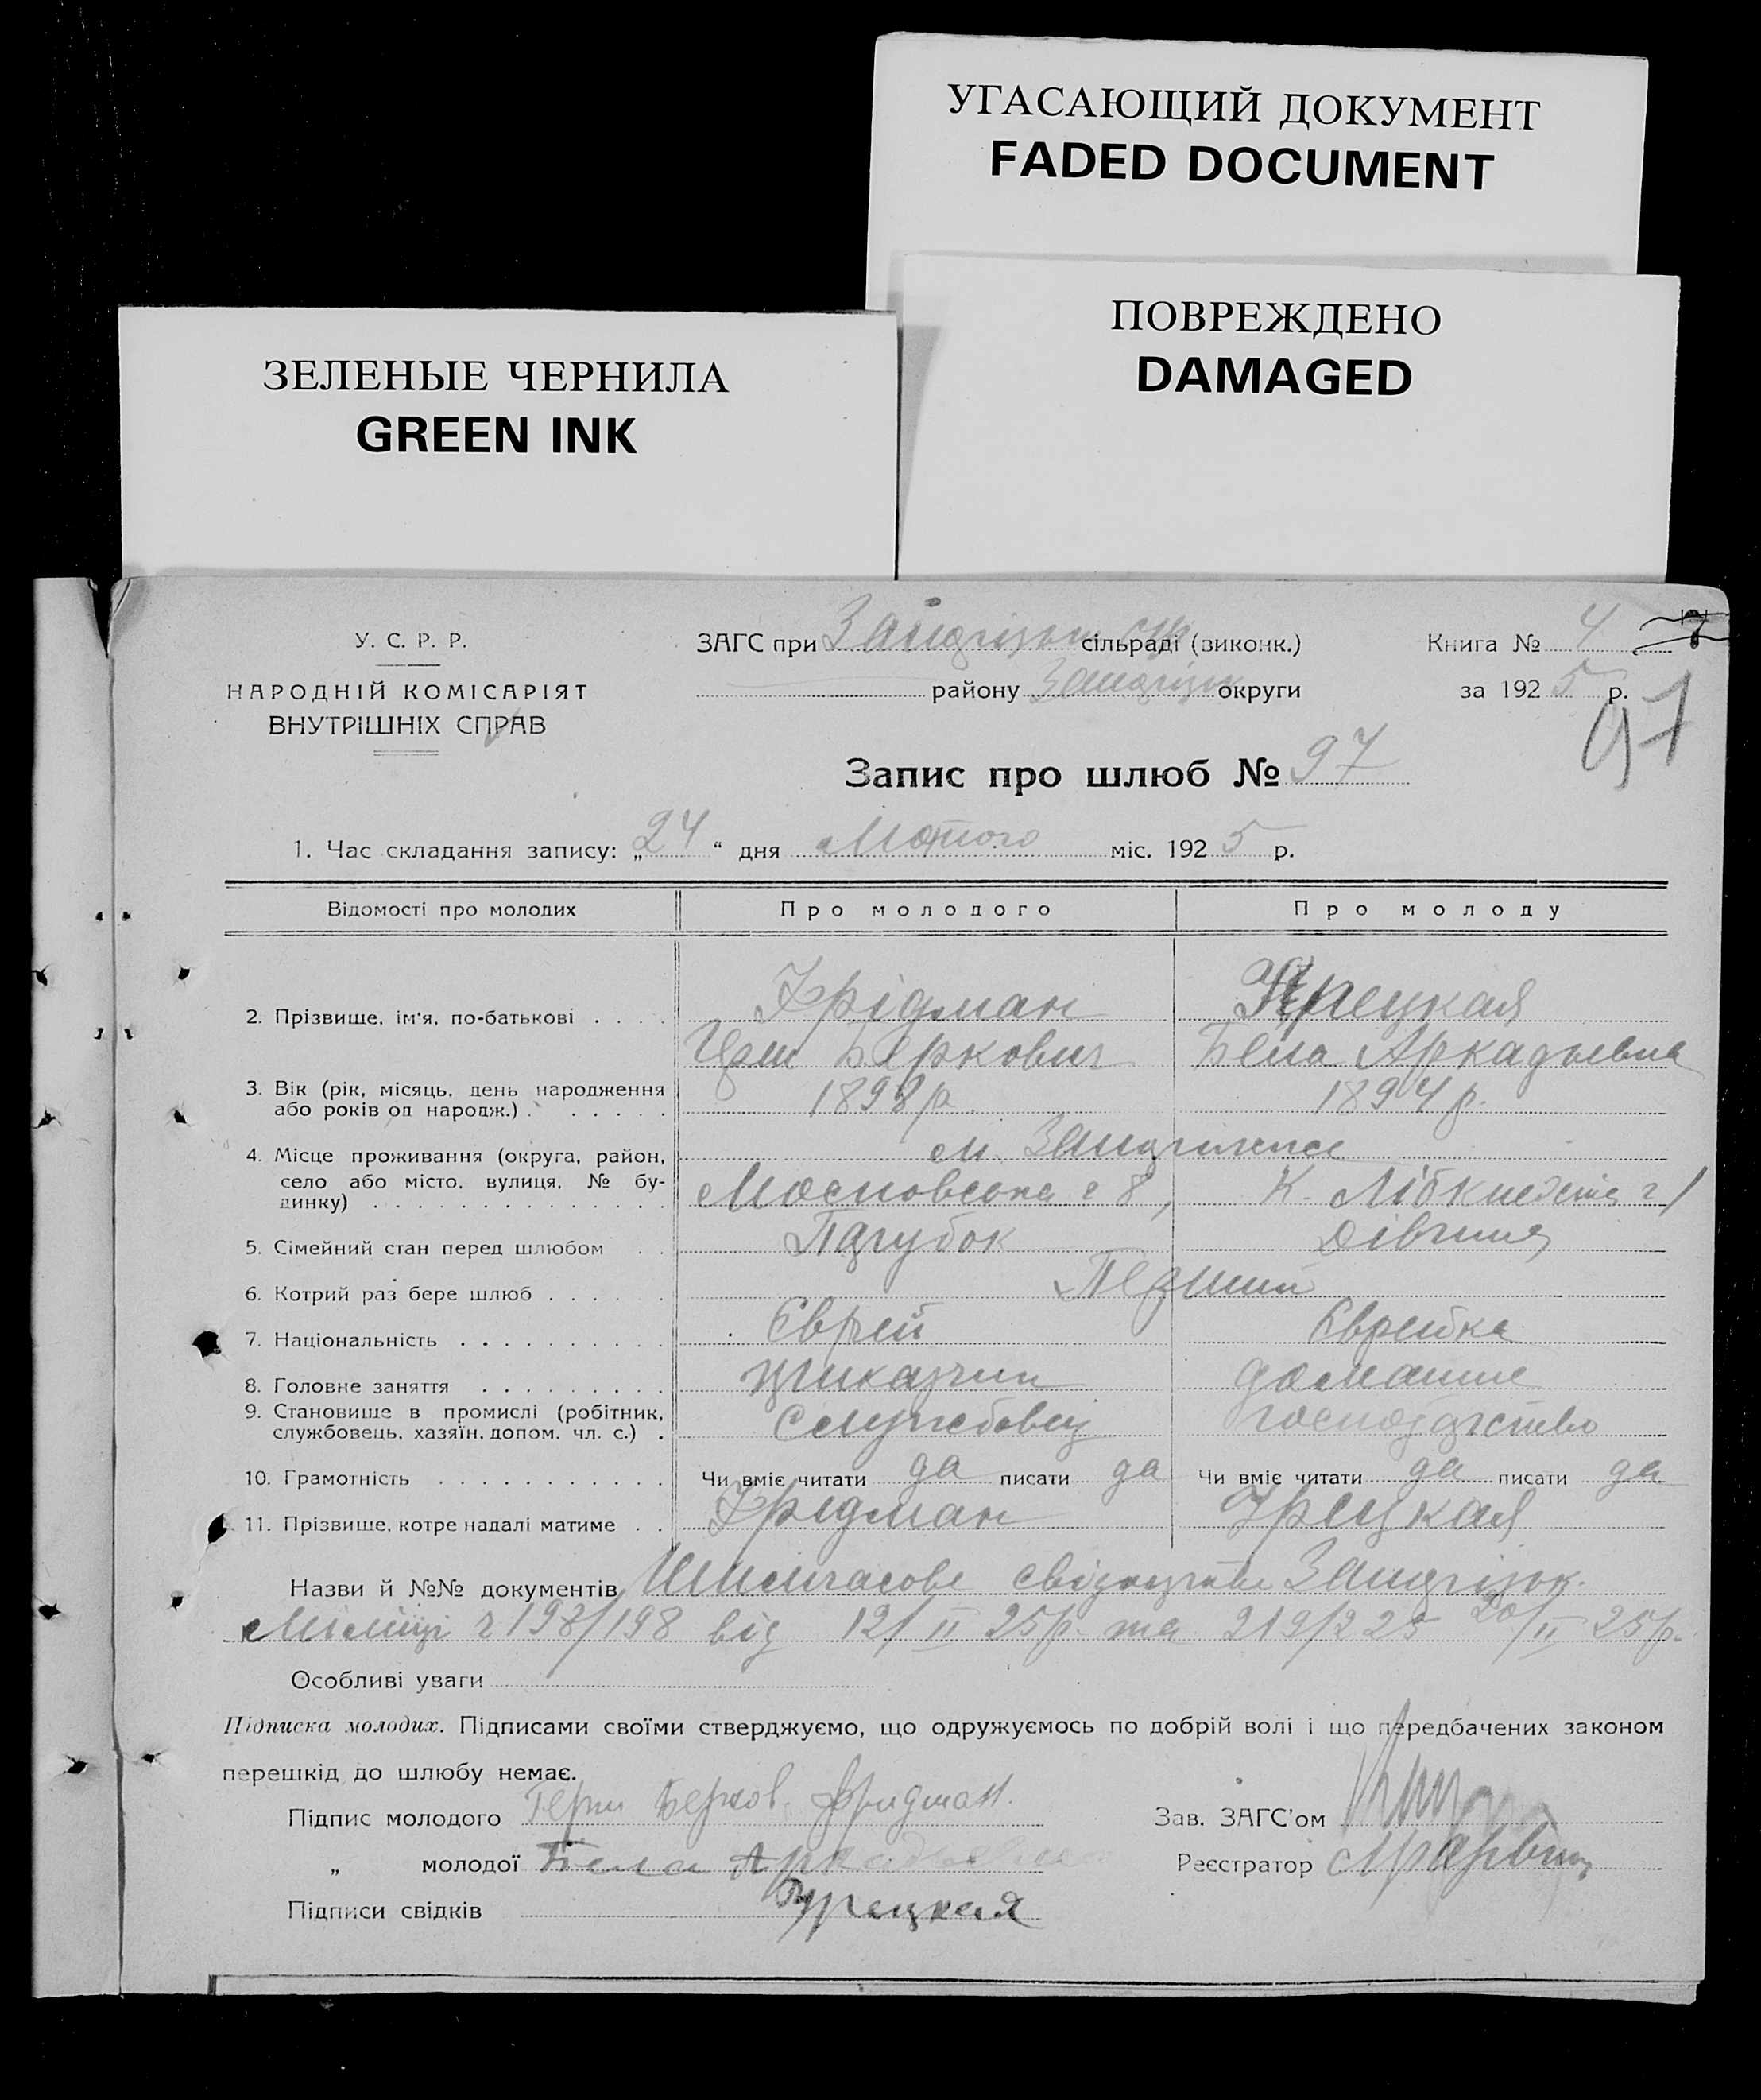 УГАСАЮЩИЙ ДОКУМЕНТ
FADED DOCUMENT
ПОВРЕЖДЕНО
DAMAGED
ЗЕЛЕНЫЕ ЧЕРНИЛА
GREEN INK
У. С. Р. Р.
НАРОДНІЙ КОМІСАРІЯТ
ВНУТРІШНІХ СПРАВ
ЗАГС при сільраді (виконк.)
району округи
Книга № 4
за 1925 р.
97
Запис про шлюб № 97
1. Час складання запису: „24“ дня Лютого міс. 1925 р.
Відомості про молодих Про молодого Про молоду
2. Прізвище, ім'я, по-батькові Фрідман
Беркович Бела Аркадьевна
3. Вік (рік, місяць, день народження або років од народж.) 1898 р. 1894 р.
4. Місце проживання (округа, район, село або місто, вулиця, № будинку) м.
Московська 8, К. Лібкнехта 1
5. Сімейний стан перед шлюбом Парубок Дівчина
6. Котрий раз бере шлюб Перший
7. Національність Єврей Єврейка
8. Головне заняття приказчик домашнє
9. Становище в промислі (робітник, службовець, хазяїн, допом. чл. с.) Службовец господарство
10. Грамотність Чи вміє читати да писати да Чи вміє читати да писати да
11. Прізвище, котре надалі матиме Фрідман Урецкая
Назви й №№ документів
Міліції 198 від 12/II 25р. та 20/II 25р.
Особливі уваги
Підписка молодих. Підписами своїми стверджуємо, що одружуємось по добрій волі і що передбачених законом
перешкід до шлюбу немає.
Підпис молодого Герш Берков. Фридман.
Зав. ЗАГС'ом
„ молодої Бела Аркадьевна
Реєстратор
Урецкая
Підписи свідків